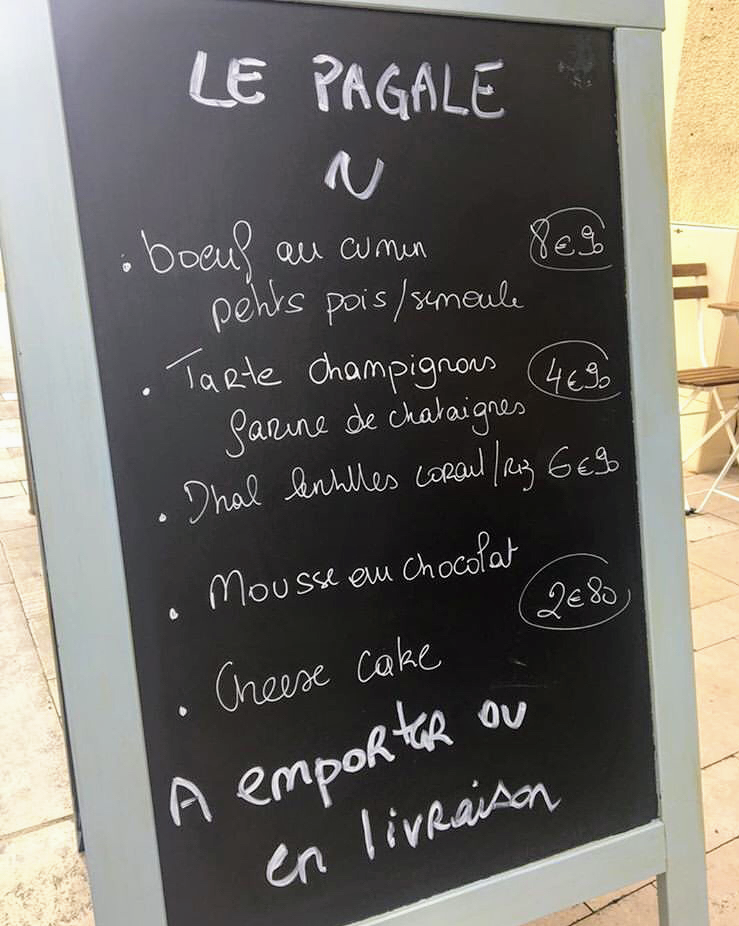 LE PAGALE
N
• boeuf au cumin 8€90
petits pois/semoule
• Tarte champignons 4€90
farine de chataignes
• Dhal lentilles corail/riz 6€90
• Mousse au chocolat
2€80
• Cheese cake
A emporter ou
en livraison